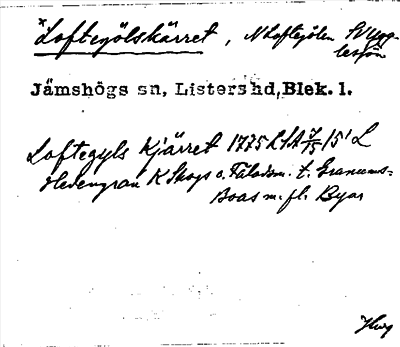 *Loftegölskärret, N Loftegölen SV Ugg-
lesjön
Jämshögs sn, Listers hd, Blek. l.
Loftegyls Kjärret 1775 LSA 7/15 15¹ L
Hedengran K Skogs o. Fälads m. t. Granums=
Boas m. fl. Byar
Hwg